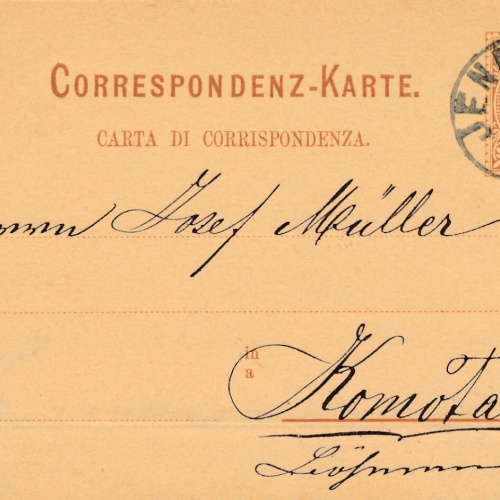 CORRESPONDENZ-KARTE.
CARTA DI CORRISPONDENZA.
JENA
Josef Müller
in
a
Komota